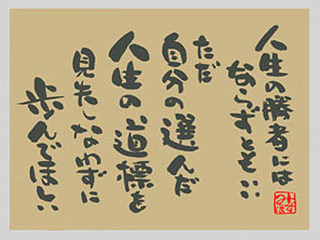 人生の勝者には
ならずともいい
ただ
自分の選んだ
人生の道標を
見失しなわずに
歩んでほしい